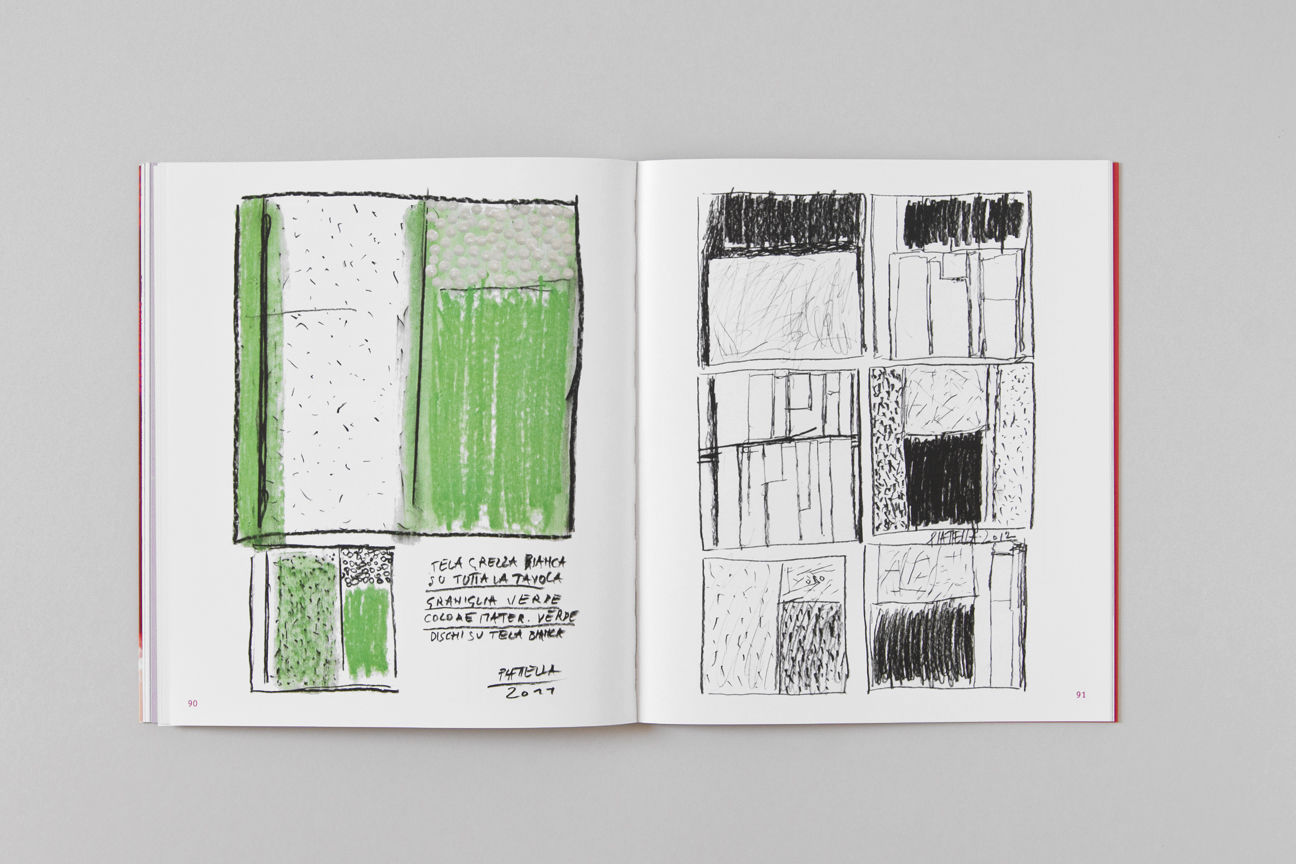 TELA GREZZA BIANCA
SU TUTTA LA TAVOLA
GRANIGLIA VERDE
COLORE MATER. VERDE
DISCHI SU TELA BIANCA
PIATTELLA
2011
90
PIATTELLA 2012
91